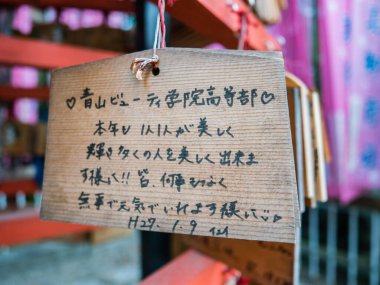 ♡青山ビューティ学院高等部♡
本年も1人1人が美しく
輝き多くの人を美しく出来ま
す様に!!皆、何事もなく
無事で元気でいれます様に
H27.1.9